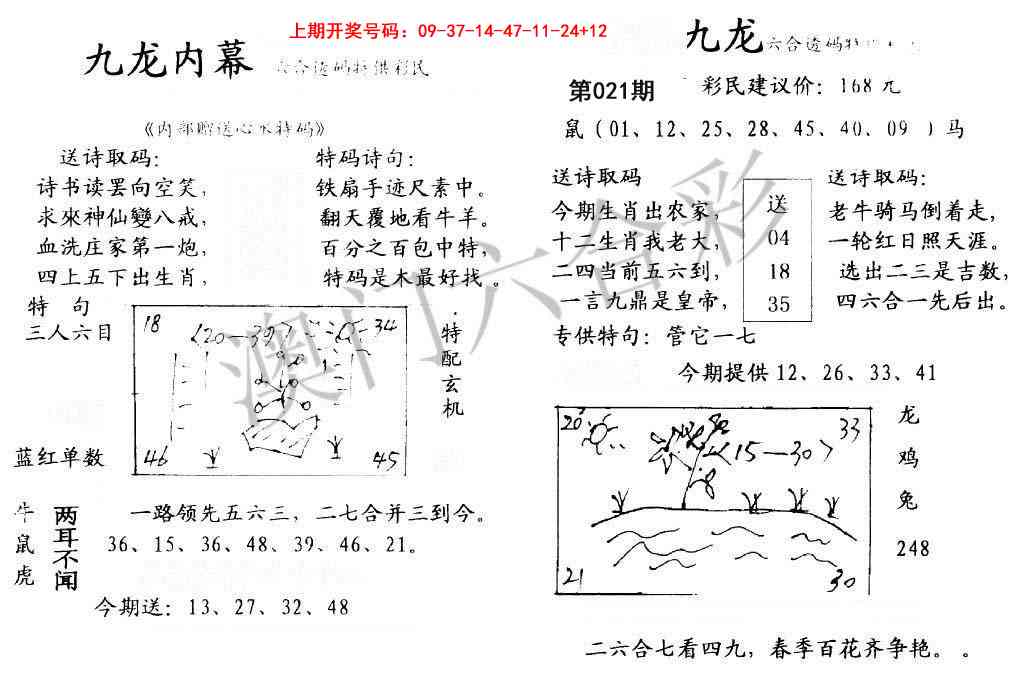 上期开奖号码：09-37-14-47-11-24+12
九龙内幕
六合透码特供彩民
《内部赠送心水特码》
送诗取码：
诗书读罢向空笑，
求來神仙變八戒，
血洗庄家第一炮，
四上五下出生肖，
特码诗句：
铁扇手迹尺素中。
翻天覆地看牛羊。
百分之百包中特，
特码是木最好找。
特 句
三人六目
蓝红单数
18
<20—39>
34
46
45
特配玄机
牛
鼠
虎
两耳不闻
一路领先五六三，二七合并三到今。
36、15、36、48、39、46、21。
今期送：13、27、32、48
九龙
六合透码特
第021期
彩民建议价：168元
鼠（01、12、25、28、45、40、09 ）马
送诗取码
今期生肖出农家，
十二生肖我老大，
二四当前五六到，
一言九鼎是皇帝，
送
04
18
35
送诗取码：
老牛骑马倒着走，
一轮红日照天涯。
选出二三是吉数，
四六合一先后出。
专供特句：管它一七
今期提供12、26、33、41
20
33
<15—30>
21
30
龙
鸡
兔
248
二六合七看四九，春季百花齐争艳。 。
澳门六合彩